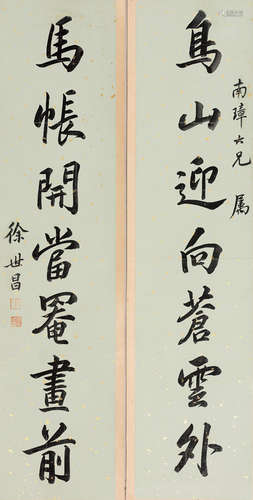 南璋六兄 属
鳥山迎向蒼雲外
馬帳開當罨畫前
徐世昌